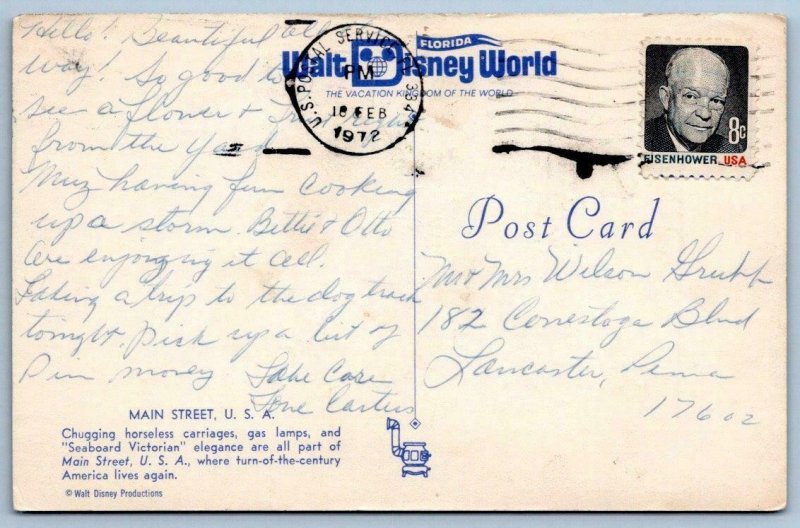 Hello! Beautiful all the
way! So good to
see a flower & fruit
from the yard
Muz having fun cooking
up a storm. Bettie & Otto
are enjoying it all.
Taking a trip to the dog track
tonight. Pick up a bit of
Pin money. Take Care
Love Carters
MAIN STREET, U. S. A.
Chugging horseless carriages, gas lamps, and
"Seaboard Victorian" elegance are all part of
Main Street, U. S. A., where turn-of-the-century
America lives again.
© Walt Disney Productions
FLORIDA
Walt Disney World
THE VACATION KINGDOM OF THE WORLD
U.S. POSTAL SERVICE
PM
18 FEB
1972
8c
EISENHOWER USA
Post Card
Mr & Mrs Wilson Grubb
182 Conestoga Blvd
Lancaster, Penna
17602